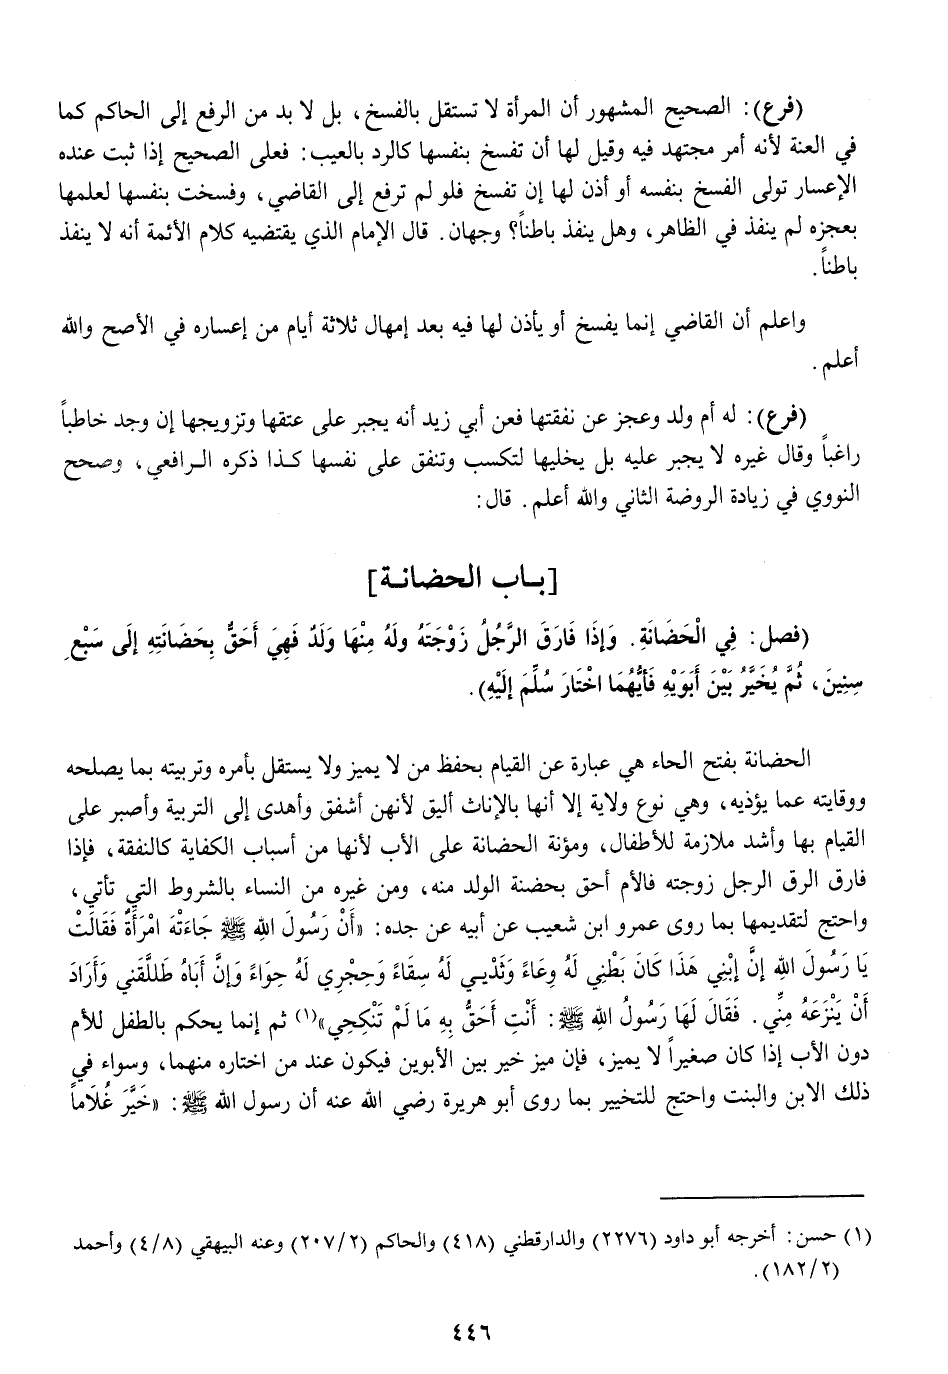 (فرع): الصحيح المشهور أن المرأة لا تستقل بالفسخ، بل لا بد من الرفع إلى الحاكم كما
في العنة لأنه أمر مجتهد فيه وقيل لها أن تفسخ بنفسها كالرد بالعيب: فعلى الصحيح إذا ثبت عنده
الإعسار تولى الفسخ بنفسه أو أذن لها إن تفسخ فلو لم ترفع إلى القاضي، وفسخت بنفسها لعلمها
بعجزه لم ينفذ في الظاهر، وهل ينفذ باطناً؟ وجهان. قال الإمام الذي يقتضيه كلام الأئمة أنه لا ينفذ
باطناً.
واعلم أن القاضي إنما يفسخ أو يأذن لها فيه بعد إمهال ثلاثة أيام من إعساره في الأصح والله
أعلم.
(فرع): له أم ولد وعجز عن نفقتها فعن أبي زيد أنه يجبر على عتقها وتزويجها إن وجد خاطباً
راغباً وقال غيره لا يجبر عليه بل يخليها لتكسب وتنفق على نفسها كذا ذكره الرافعي، وصحح
النووي في زيادة الروضة الثاني والله أعلم. قال:
[باب الحضانة]
(فصل: فِي الْحَضَانَةِ. وَإِذَا فَارَقَ الرَّجُلُ زَوْجَتَهُ وَلَهُ مِنْهَا وَلَدٌ فَهِيَ أَحَقُّ بِحَضَانَتِهِ إِلَى سَبْعِ
سِنِينَ، ثُمَّ يُخَيَّرُ بَيْنَ أَبَوَيْهِ فَأَيُّهُمَا اخْتَارَ سُلِّمَ إِلَيْهِ).
الحضانة بفتح الحاء هي عبارة عن القيام بحفظ من لا يميز ولا يستقل بأمره وتربيته بما يصلحه
ووقايته عما يؤذيه، وهي نوع ولاية إلا أنها بالإناث أليق لأنهن أشفق وأهدى إلى التربية وأصبر على
القيام بها وأشد ملازمة للأطفال، ومؤنة الحضانة على الأب لأنها من أسباب الكفاية كالنفقة، فإذا
فارق الرق الرجل زوجته فالأم أحق بحضنة الولد منه، ومن غيره من النساء بالشروط التي تأتي،
واحتج لتقديمها بما روى عمرو ابن شعيب عن أبيه عن جده: «أَنْ رَسُولَ اللهِ ﷺ جَاءَتْهَ امْرَأَةٌ فَقَالَتْ
يَا رَسُولَ اللهِ إِنَّ إِبْنِي هَذَا كَانَ بَطْنِي لَهُ وِعَاءً وَثَدْيِي لَهُ سِقَاءً وَحِجْرِي لَهُ حِوَاءً وَإِنَّ أَبَاهُ طَللَّقَنِي وَأَرَادَ
أَنْ يَنْزَعَهُ مِنِّي. فَقَالَ لَهَا رَسُولُ اللهِ ﷺ: أَنْتِ أَحَقُّ بِهِ مَا لَمْ تَنْكِحِي»(١) ثم إنما يحكم بالطفل للأم
دون الأب إذا كان صغيراً لا يميز، فإن ميز خير بين الأبوين فيكون عند من اختاره منهما، وسواء في
ذلك الابن والبنت واحتج للتخيير بما روى أبو هريرة رضي الله عنه أن رسول الله ﷺ: «خَيَّرَ غُلَاماً
(١) حسن: أخرجه أبو داود (٢٢٧٦) والدارقطني (٤١٨) والحاكم (٢٠٧/٢) وعنه البيهقي (٤/٨) وأحمد
(١٨٢/٢).
٤٤٦